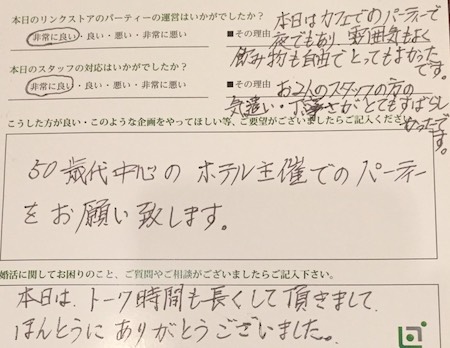 本日のリンクストアのパーティーの運営はいかがでしたか?
非常に良い・良い・悪い・非常に悪い
■その理由
本日はカフェでのパーティーで
夜でもあり、雰囲気もよく
飲み物も自由でとってもよかった
です。
本日のスタッフの対応はいかがでしたか?
非常に良い・良い・悪い・非常に悪い
■その理由
お2人のスタッフの方の
気遣い・丁寧さがとてもすばらし
かったで
す。
こうした方が良い・このような企画をやってほしい等、ご要望がございましたらご記入ください
50歳代中心のホテル主催でのパーティー
をお願い致します。
婚活に関してお困りのこと、ご質問やご相談がございましたらご記入下さい。
本日は、トーク時間も長くして頂きまして
ほんとうにありがとうございました。